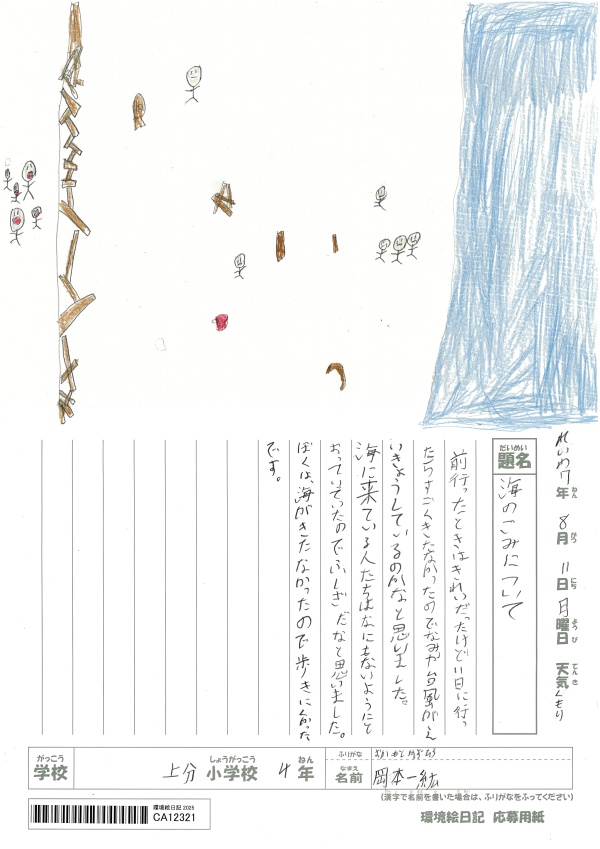 れいわ7年 8月 11日 月曜日 天気 くもり
ねん がつ にち ようび てんき
だいめい
題名 海のごみについて
前行ったときはきれいだったけど11日に行っ
たらすごくきたなかったのでなみか台風がえ
いきょうしているのかなと思いました。
海に来ている人たちはなにもないようにと
おっていていたのでふしぎだなと思いました。
ぼくは、海がきたなかったので歩きにくかった
です。
がっこう しょうがっこう ねん
学校 上分 小学校 4年
ふりがな
なまえ
名前 岡本一紘
(漢字で名前を書いた場合は、ふりがなをふってください)
環境絵日記 応募用紙
環境絵日記 2025
CA12321